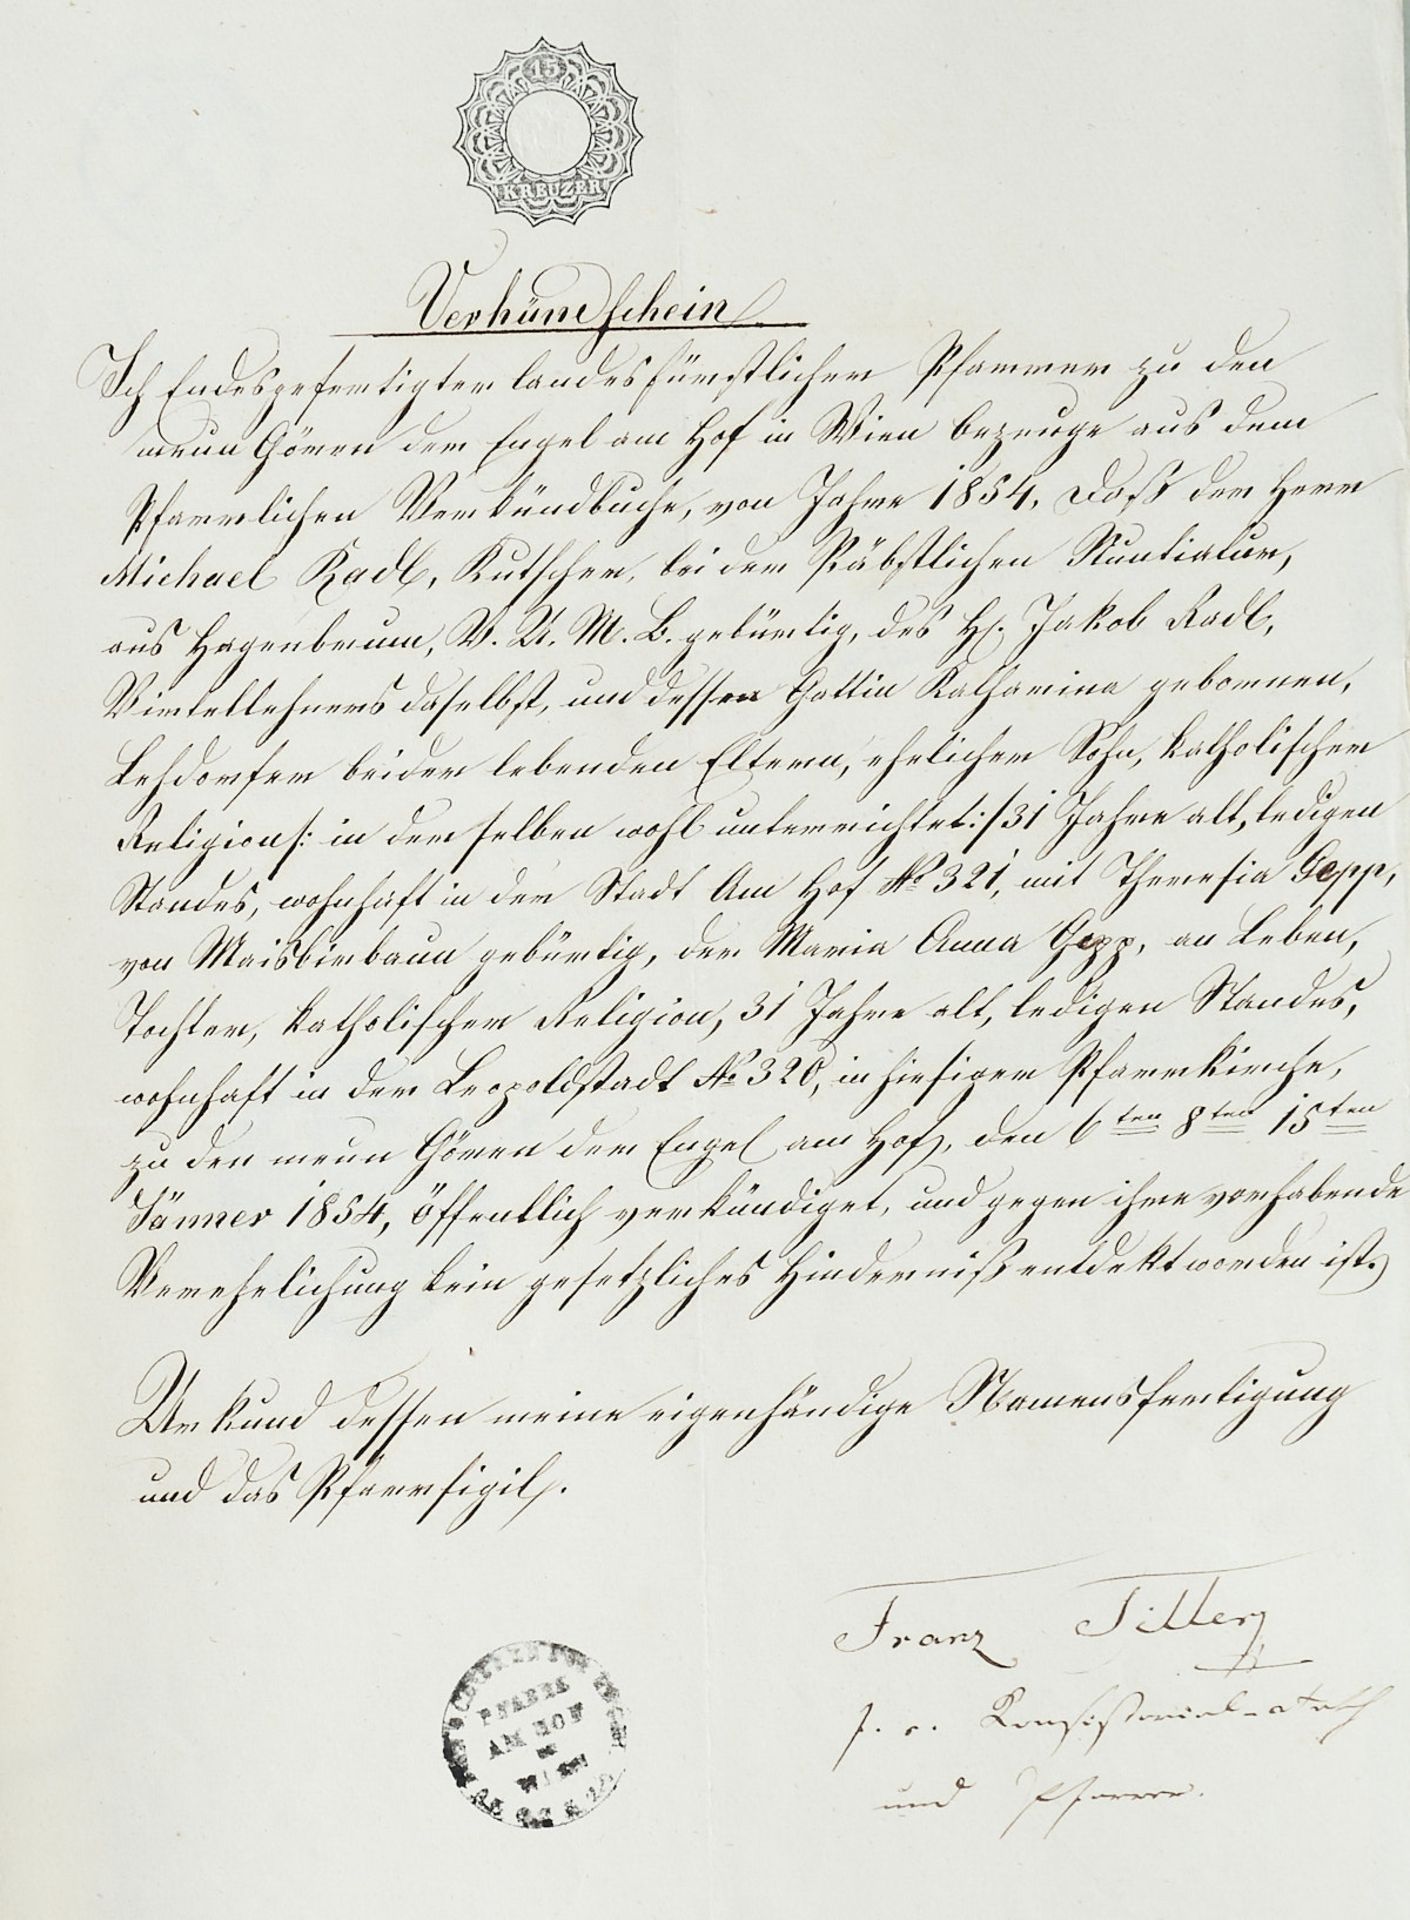 15
KREUZER
Verkündschein
Ich Endesgefertigter landesfürstlicher Pfarrer zu den
neun Chören der Engel am Hof in Wien bezeuge aus dem
Pfarrlichen Verkündbuche, von Jahre 1854, daß der Herr
Michael Radl, Kutscher, bei der Päbstlichen Nuntiatur,
aus Hagenbrunn, V. U. M. B. gebürtig, des H. Jakob Radl,
Viertellehners daselbst, und dessen Gattin Katharina gebornen,
Lehdorfer beider lebenden Eltern, ehelicher Sohn, katholischer
Religion /: in derselben wohl unterrichtet :/ 31 Jahre alt, ledigen
Standes, wohnhaft in der Stadt Am Hof No 321, mit Theresia Gepp,
von Maisbirbaun gebürtig, der Maria Anna Gepp, an Leben,
Tochter, katholischer Religion, 31 Jahre alt, ledigen Standes,
wohnhaft in der Leopoldstadt No 320, in hiesiger Pfarrkirche,
zu den neun Chören der Engel am Hof, den 6ten 8ten 15ten
Jänner 1854, öffentlich verkündiget, und gegen ihre vorhabende
Verehelichung kein gesetzliches Hinderniß entdekt worden ist.
Urkund dessen meine eigenhändige Namensfertigung
und das Pfarrsigil.
Franz
f. e. Konsistorial-Rath
und Pfarrer.
PFARRE
AM HOF
IN
WIEN